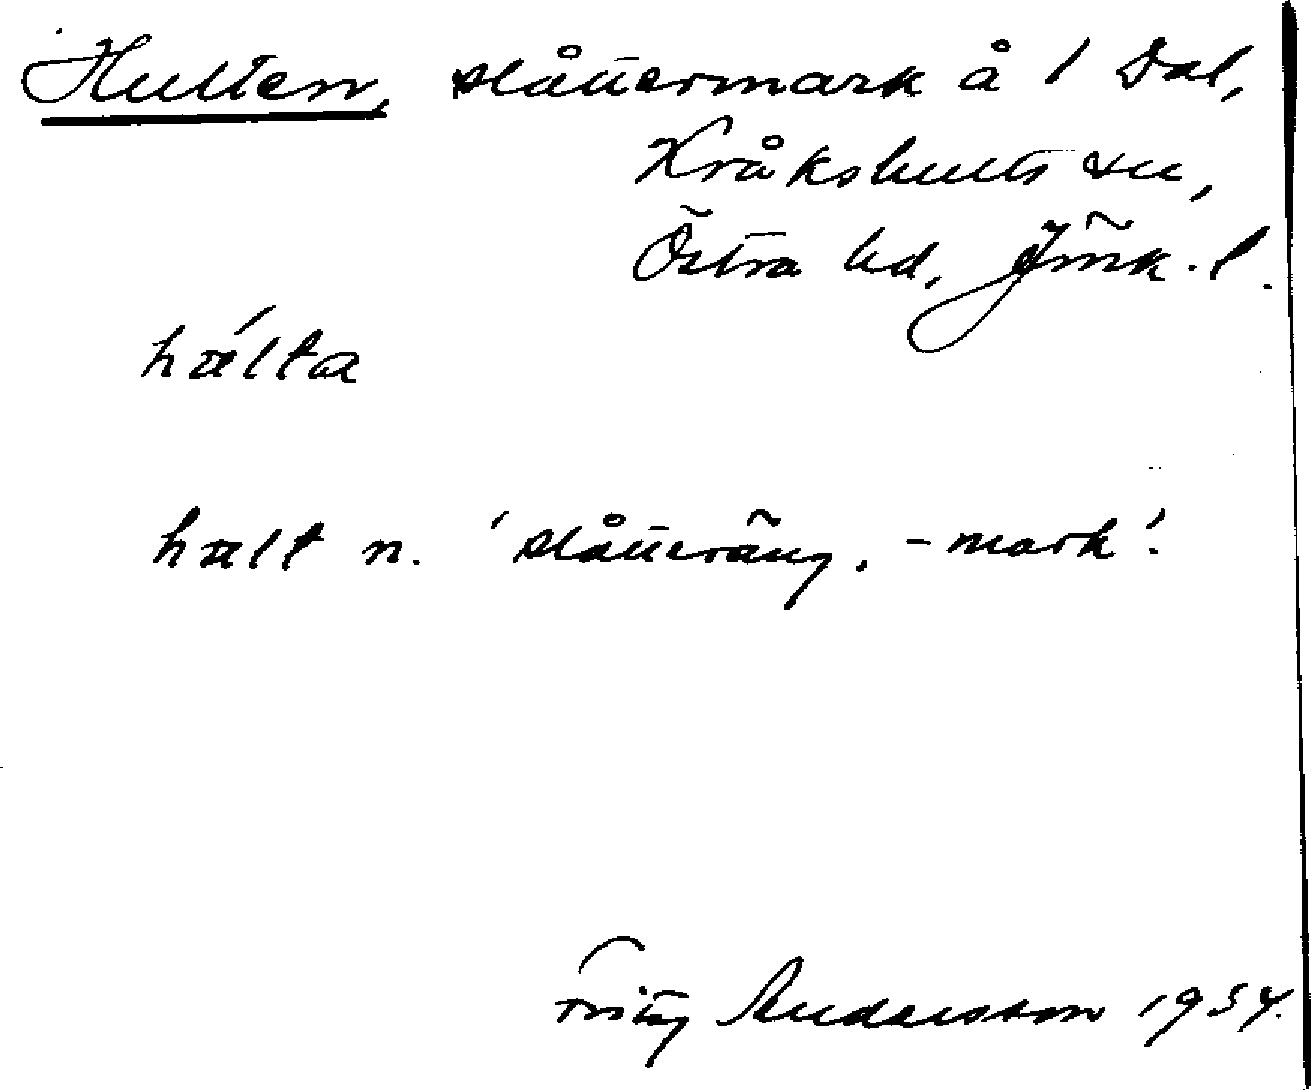 Hulten, slåttermark å 1 Dal,
Kråkshults sn,
Östra hd, Jönk. l.
hálta
halt n. 'slåtteräng, -mark'.
Fritz Andersson 1954.